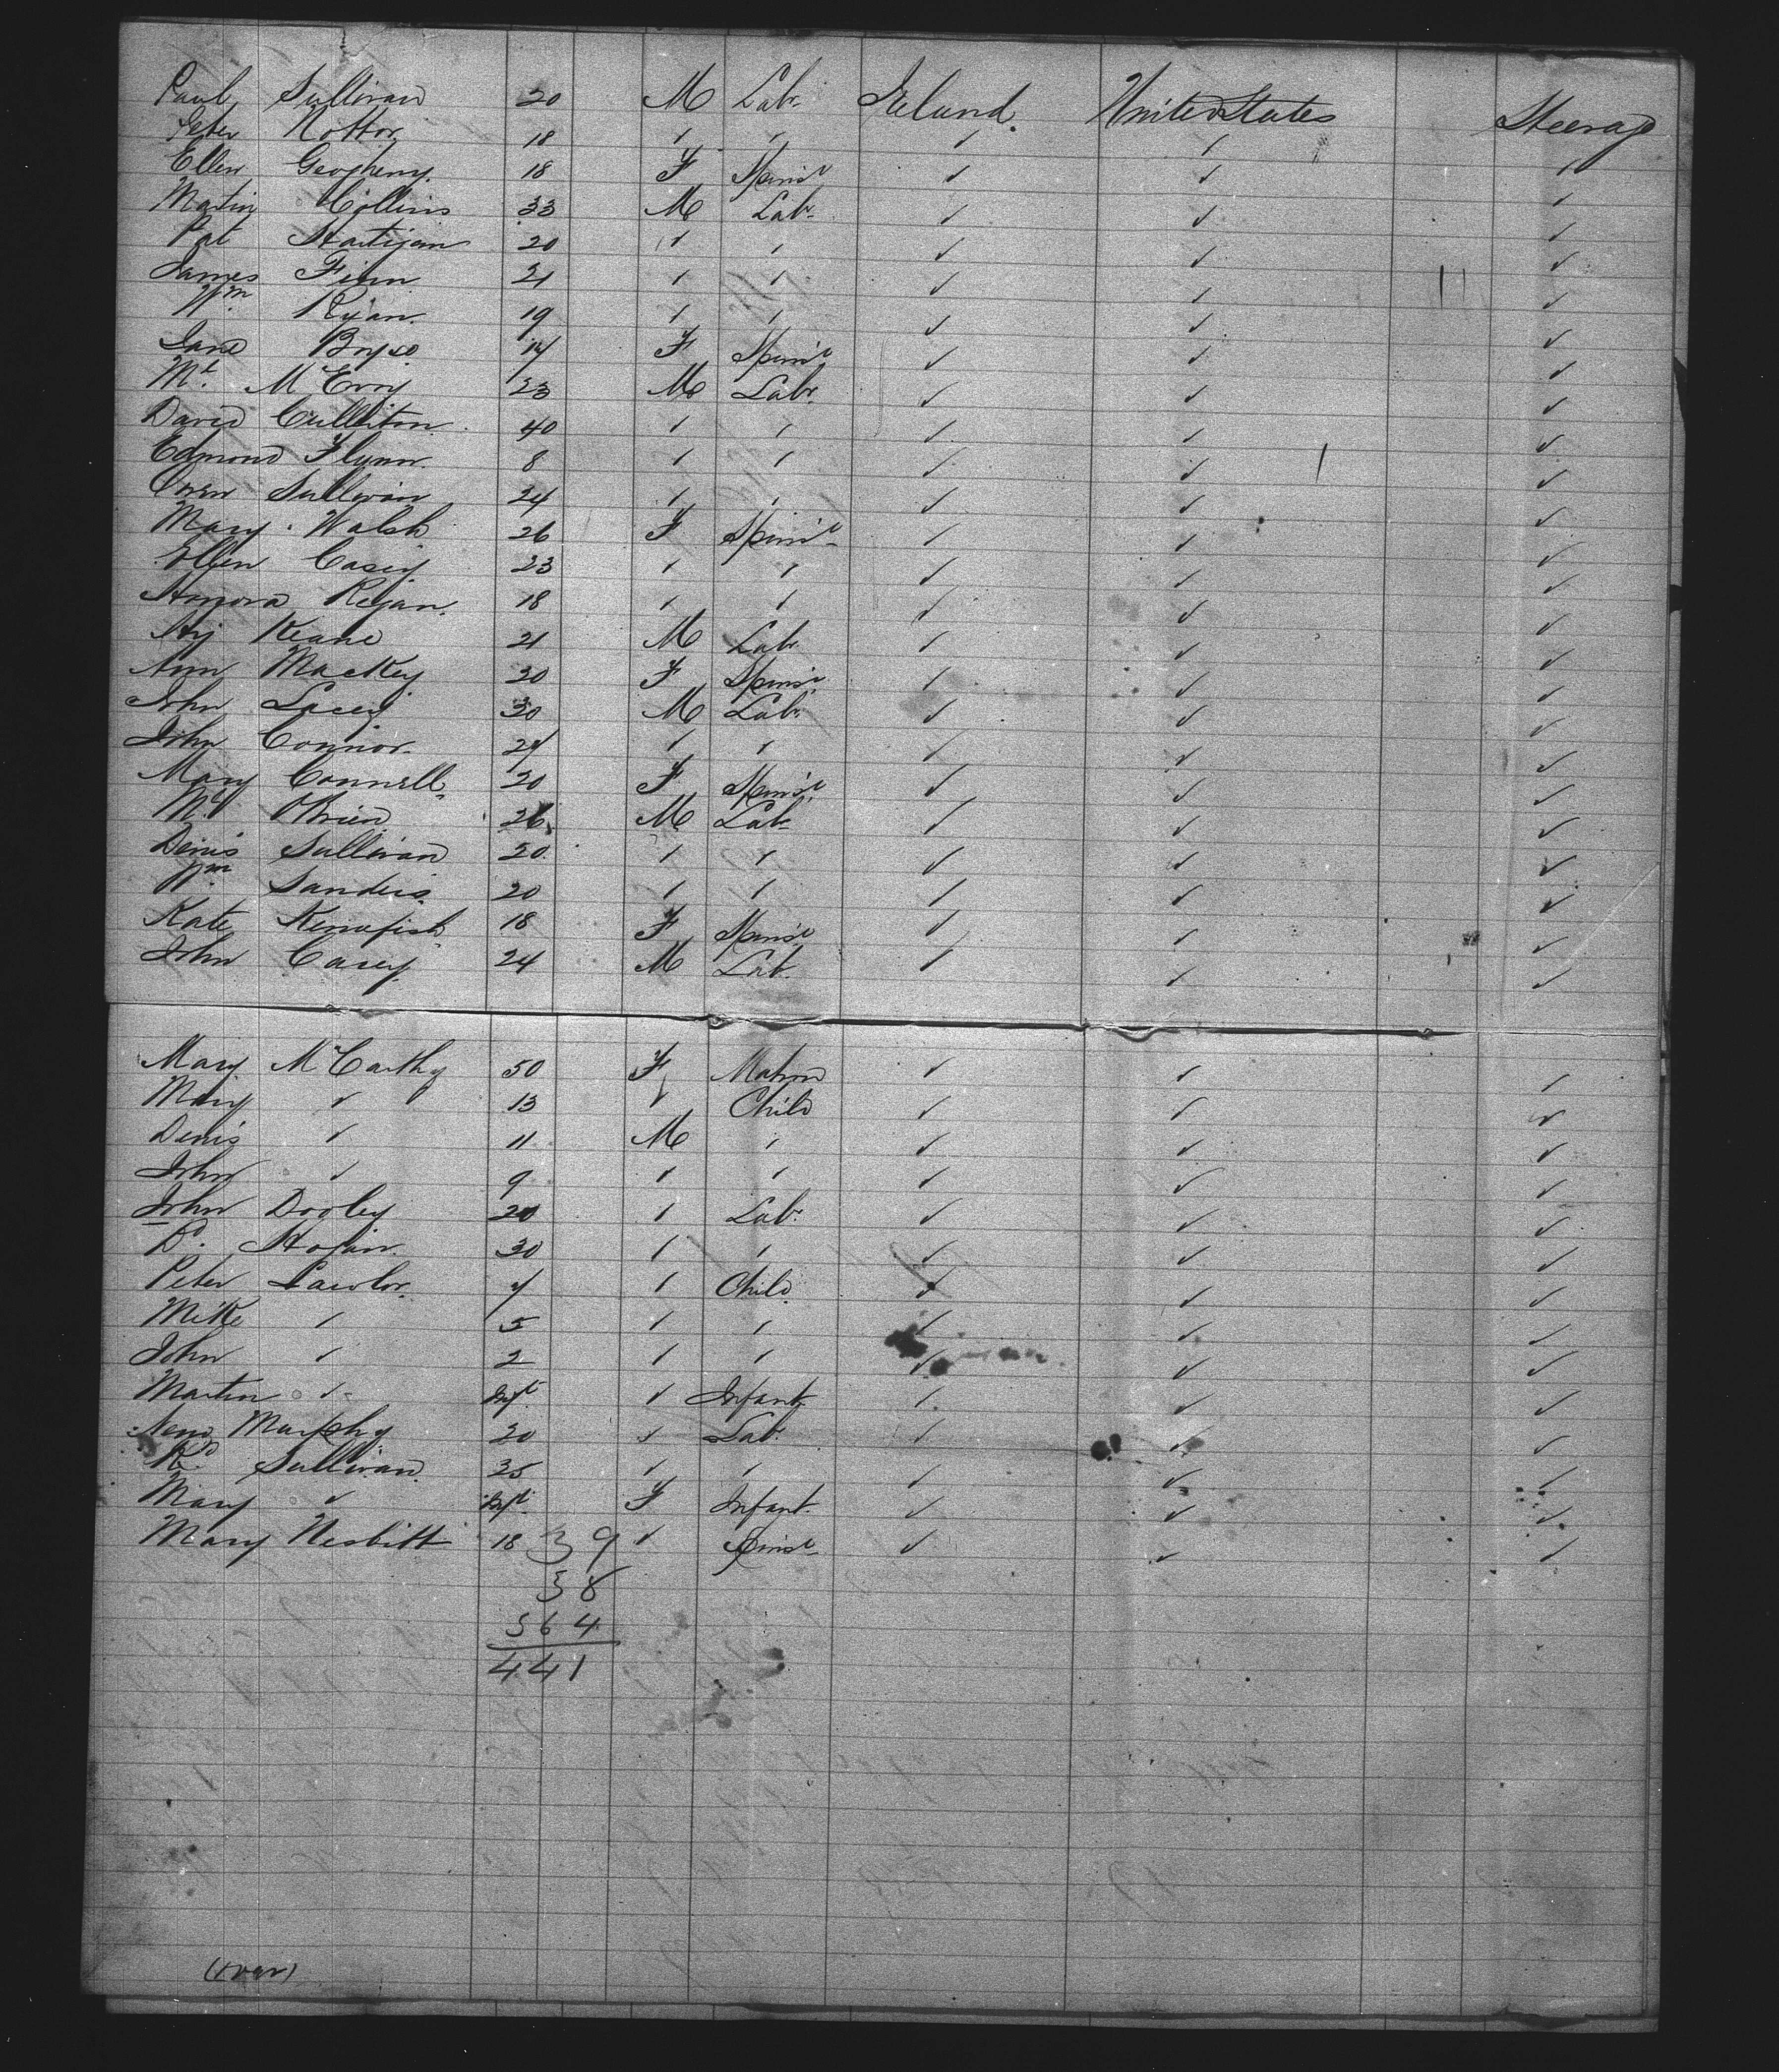 Paul Sullivan 20 M Labr Ireland. United States Steerage
Peter Nottor 18 ✓ ✓ ✓ ✓ ✓
Ellen Geogheny 18 F Spinsr ✓ ✓ ✓
Martin Collins 33 M Labr ✓ ✓ ✓
Pat Hartigan 20 ✓ ✓ ✓ ✓ ✓
James Finn 21 ✓ ✓ ✓ ✓ ✓
Wm Ryan 19 ✓ ✓ ✓ ✓ ✓
Jane Boyse 17 F Spinsr ✓ ✓ ✓
Mt. McEvoy 23 M Labr ✓ ✓ ✓
David Culliton 40 ✓ ✓ ✓ ✓ ✓
Edmond Flynn 8 ✓ ✓ ✓ ✓ ✓
Owen Sullivan 24 ✓ ✓ ✓ ✓ ✓
Mary Walsh 26 F Spinsr ✓ ✓ ✓
Ellen Casey 23 ✓ ✓ ✓ ✓ ✓
Honora Regan 18 ✓ ✓ ✓ ✓ ✓
Hy Keane 21 M Labr ✓ ✓ ✓
Ann Mackey 20 F Spinsr ✓ ✓ ✓
John Lacey 30 M Labr ✓ ✓ ✓
John Connor 27 ✓ ✓ ✓ ✓ ✓
Mary Connell 20 F Spinsr ✓ ✓ ✓
OBrien 26 M Labr ✓ ✓ ✓
Denis Sullivan 20 ✓ ✓ ✓ ✓ ✓
Wm Sanders 20 ✓ ✓ ✓ ✓ ✓
Kate Kennefish 18 F Spinsr ✓ ✓ ✓
John Casey 24 M Labr ✓ ✓ ✓
Mary McCarthy 50 F Matron ✓ ✓ ✓
Mary ✓ 13 ✓ Child ✓ ✓ ✓
Denis ✓ 11 M ✓ ✓ ✓ ✓
John ✓ 9 ✓ ✓ ✓ ✓ ✓
John Dooley 20 ✓ Labr ✓ ✓ ✓
Hogan 30 ✓ ✓ ✓ ✓ ✓
Peter Lawlor 7 ✓ Child ✓ ✓ ✓
Mike ✓ 5 ✓ ✓ ✓ ✓ ✓
John ✓ 2 ✓ ✓ ✓ ✓ ✓
Martin ✓ Inft ✓ Infant ✓ ✓ ✓
Murphy 20 ✓ Labr ✓ ✓ ✓
Rd Sullivan 25 ✓ ✓ ✓ ✓ ✓
Mary ✓ Inft F Infant ✓ ✓ ✓
Mary Nesbitt 18 ✓ Spinsr ✓ ✓ ✓
39
38
364
441
(over)